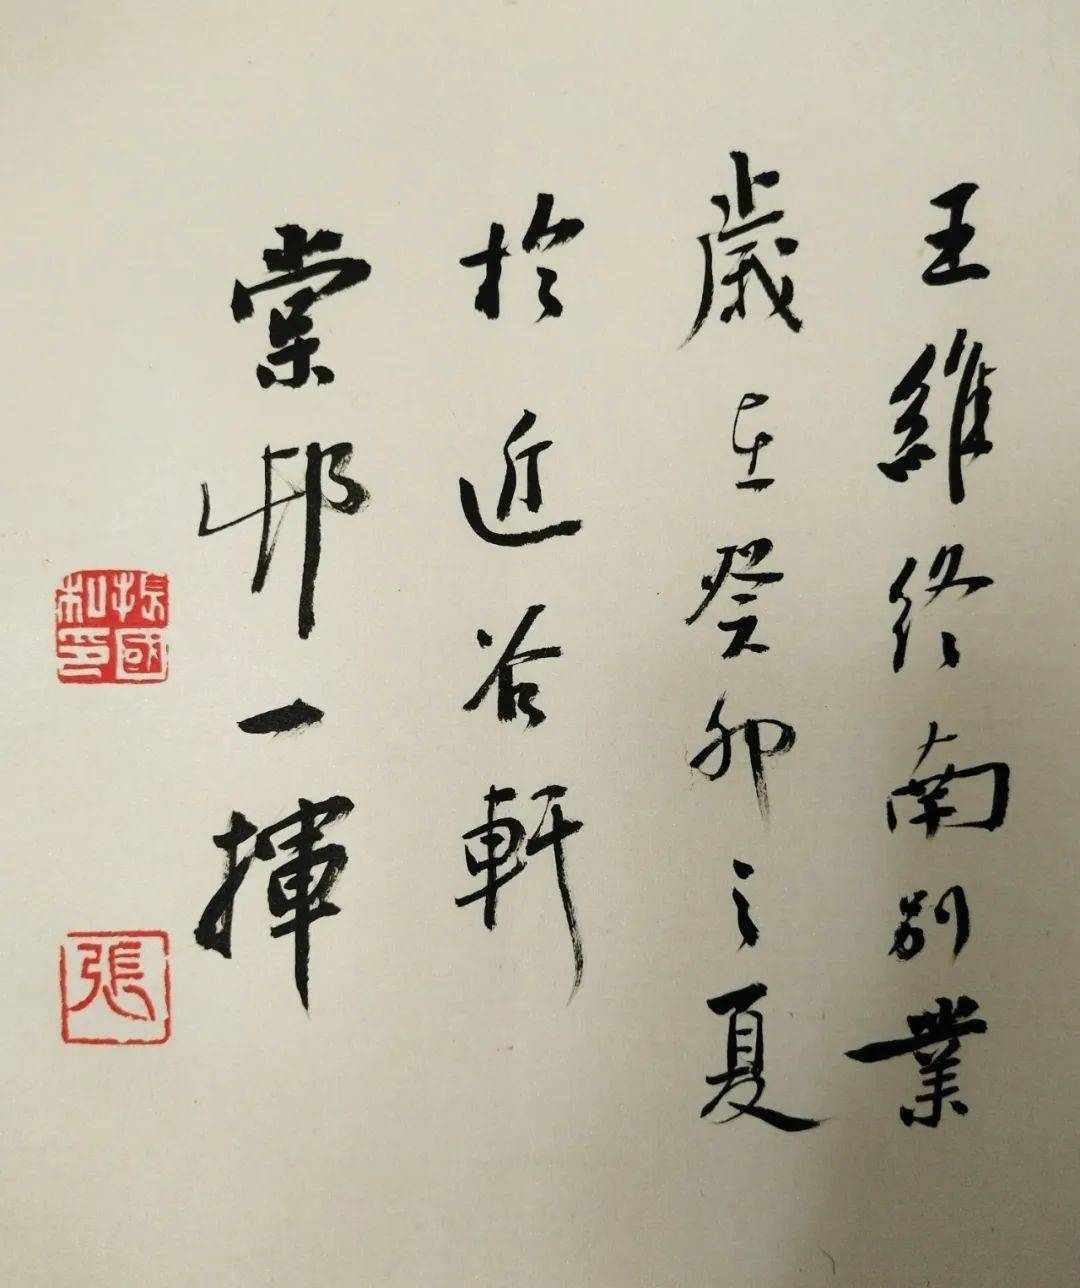 王維終南別業
歲在癸卯之夏
於近谷軒
棠邨一揮
張國和印
張